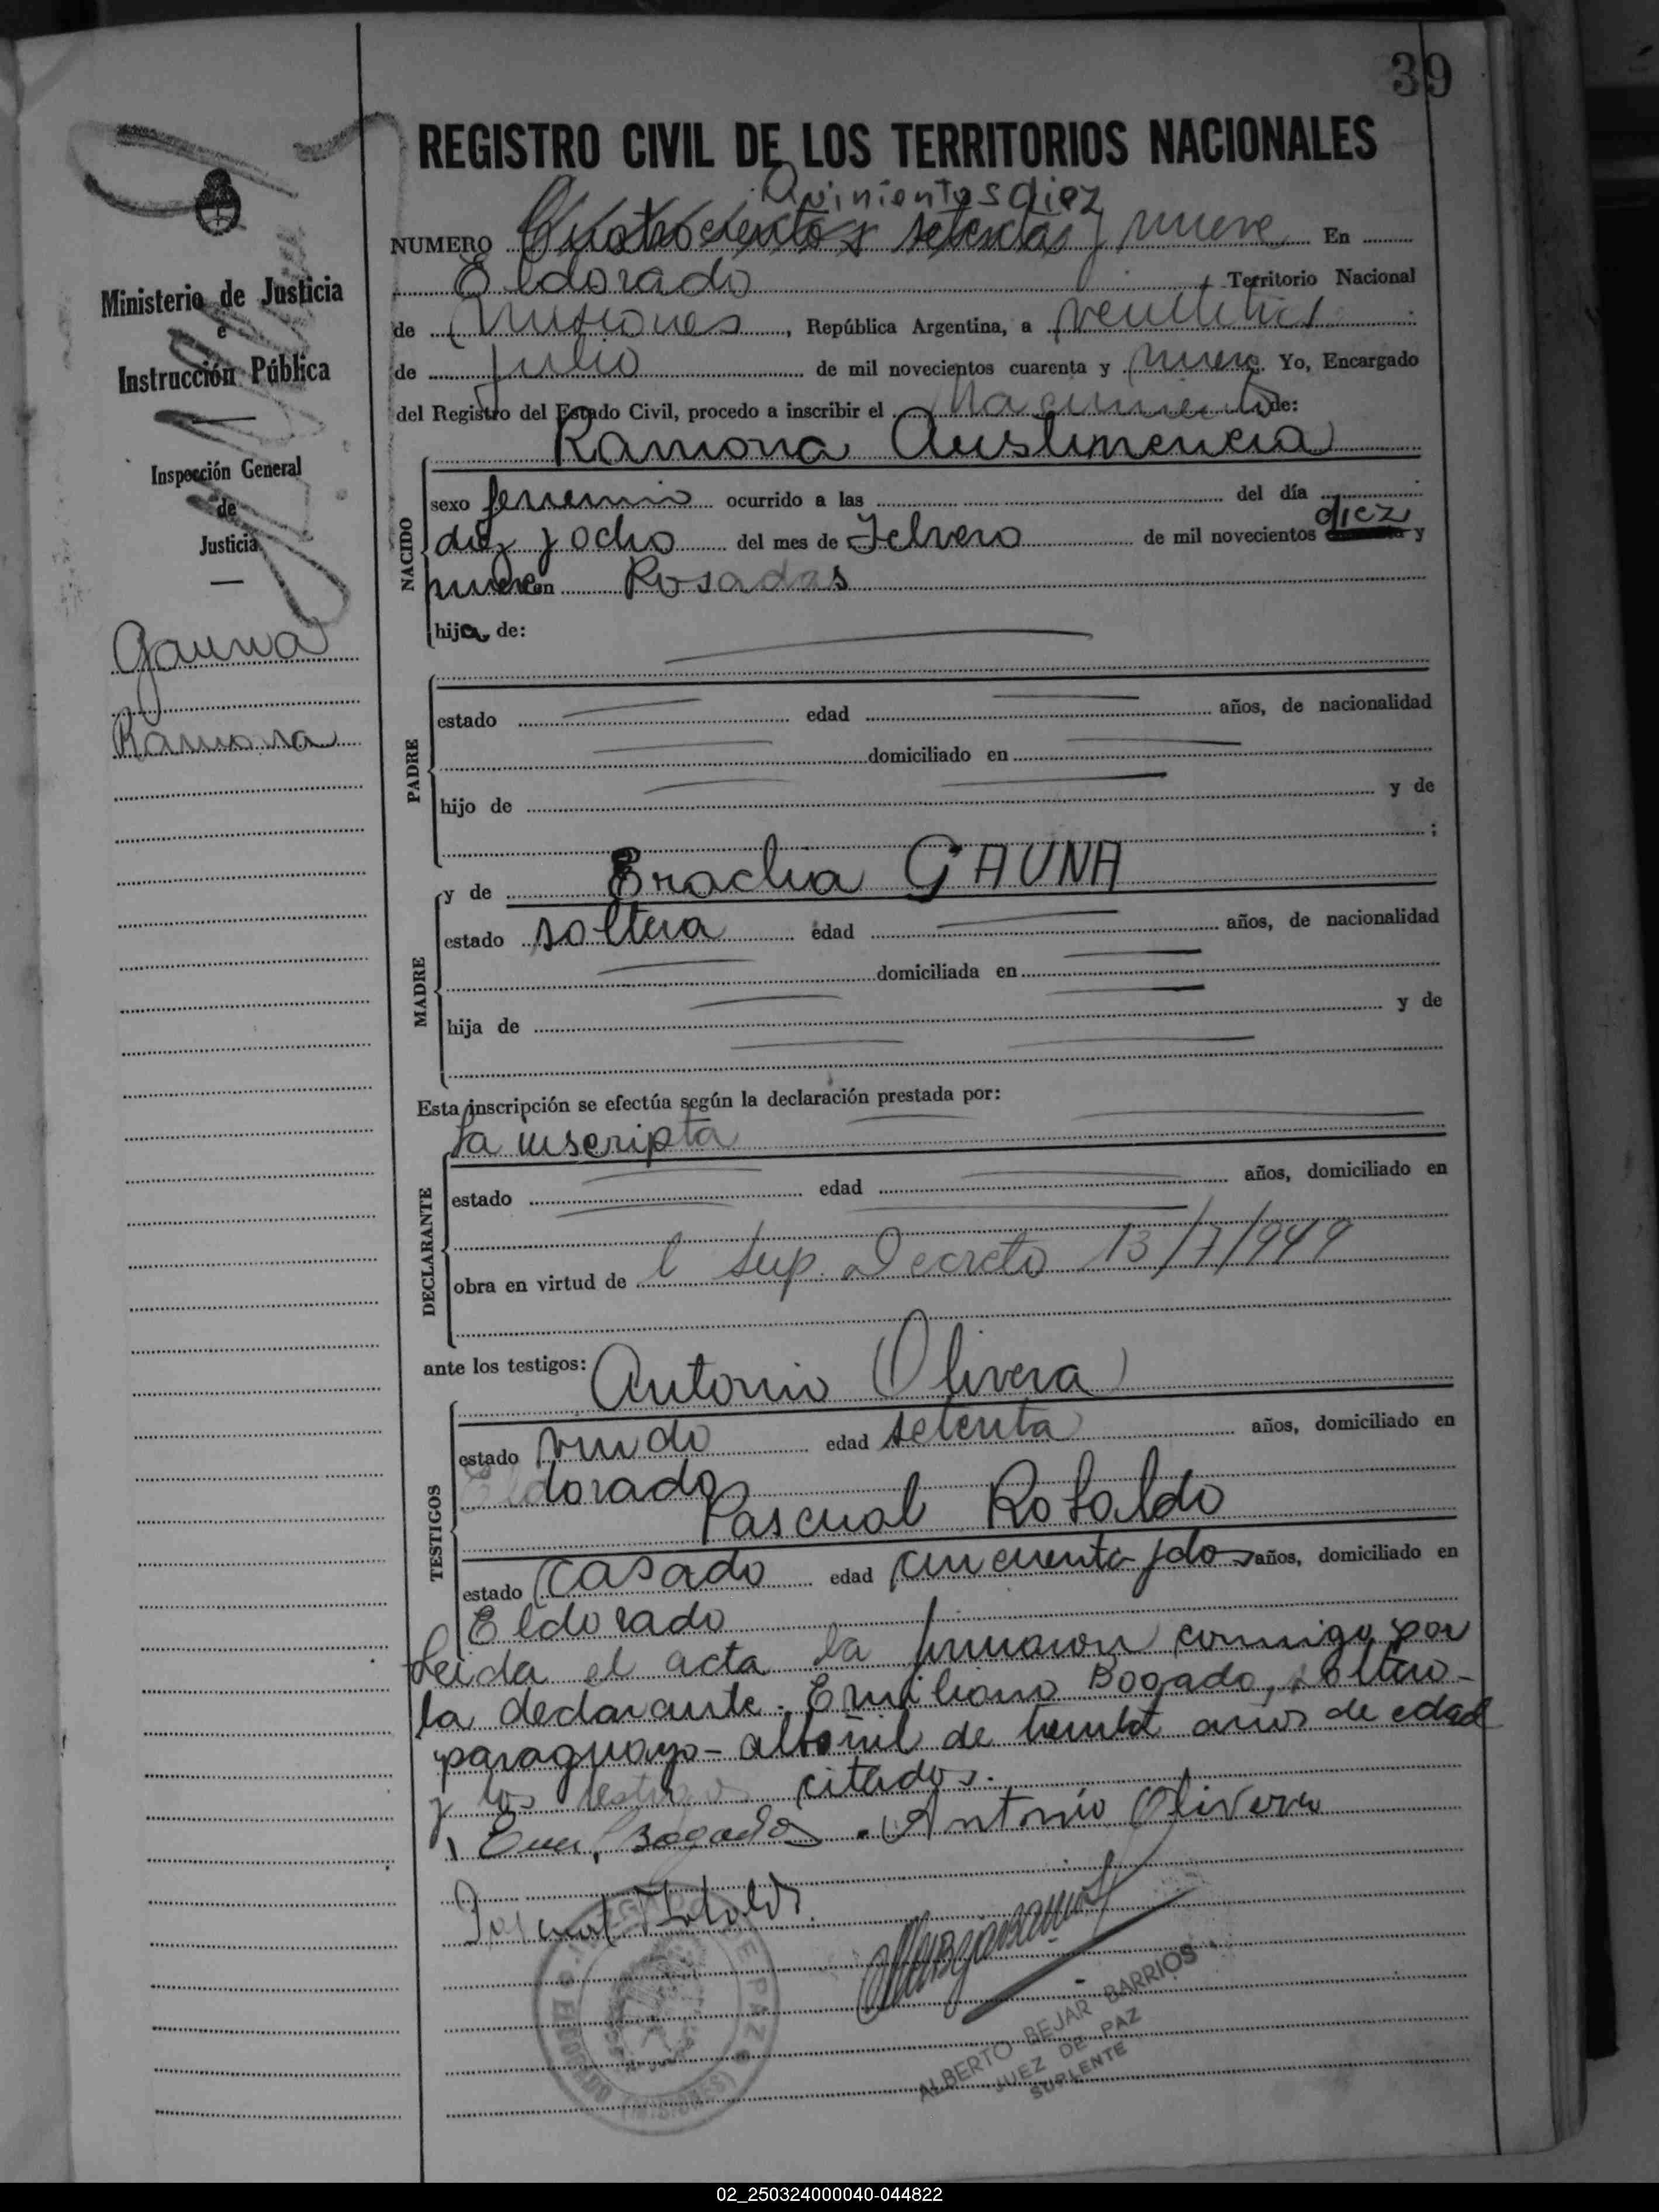 39
REGISTRO CIVIL DE LOS TERRITORIOS NACIONALES
Quinientos diez
NUMERO Cuatrocientos setenta y nueve En
Eldorado Territorio Nacional
de Misiones, República Argentina, a
de Julio de mil novecientos cuarenta y nueve. Yo, Encargado
del Registro del Estado Civil, procedo a inscribir el Nacimiento de:
Ramona Austimencia
NACIDO
sexo femenino ocurrido a las del día
diez y ocho del mes de Febrero de mil novecientos diez y
nueve en Posadas
hija de:
PADRE
estado edad años, de nacionalidad
domiciliado en
hijo de y de
;
MADRE
y de Eraclia GAUNA
estado soltera edad años, de nacionalidad
domiciliada en
hija de y de
Esta inscripción se efectúa según la declaración prestada por:
la inscripta
DECLARANTE
estado edad años, domiciliado en
obra en virtud de l Sup. Decreto 13/7/949
ante los testigos: Antonio Olivera
TESTIGOS
estado viudo edad setenta años, domiciliado en
Eldorado
Pascual Rotoldo
estado casado edad cincuenta y dos años, domiciliado en
Eldorado
Leida el acta la firmaron conmigo por
la declarante. Emiliano Bogado, soltero-
paraguayo- albañil de treinta años de edad
y los testigos citados.
Emi. Bogado. Antonio Olivera
Pascual
ALBERTO BEJAR BARRIOS
JUEZ DE PAZ
SUPLENTE
DE PAZ
ELDORADO (MISIONES)
Ministerio de Justicia
e
Instrucción Pública
Inspección General
de
Justicia
Gauna
Ramona
02_250324000040-044822